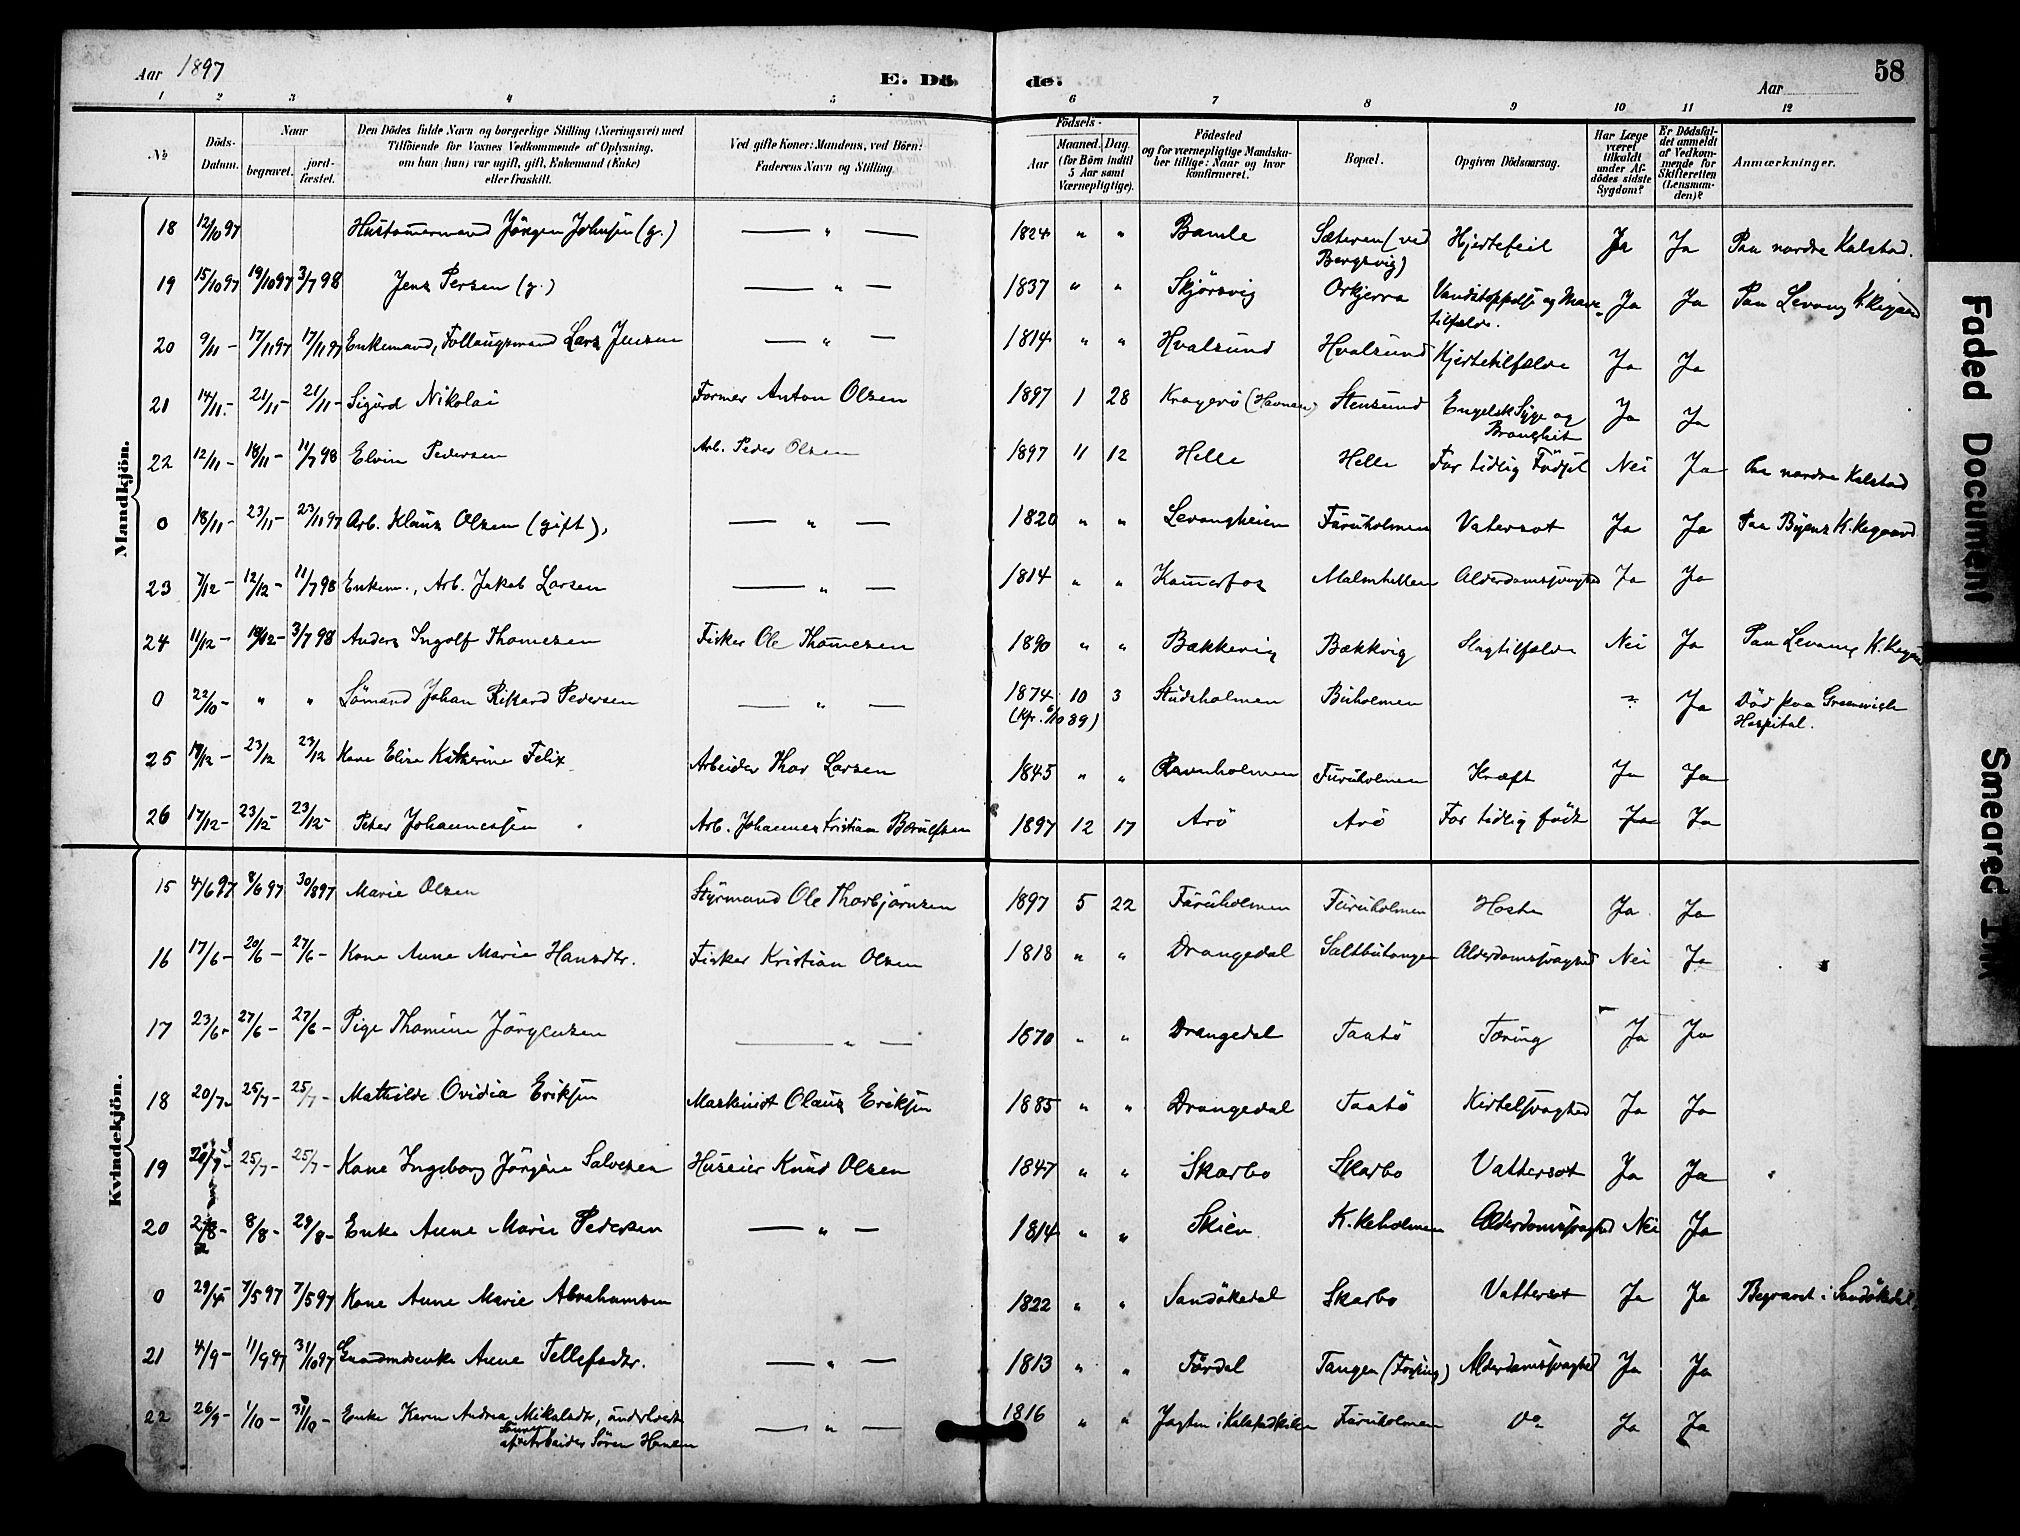 Aar 1897 E. Dö de. Aar 58
1 2 3 4 5 6 7 8 9 10 11 12
No Döds-Datum. Naar begravet. jord-fæstet. Den Dödes fulde Navn og borgerlige Stilling (Næringsvei) med Tilföiende for Voxnes Vedkommende af Oplysning, om han (hun) var ugift, gift, Enkemand (Enke) eller fraskilt. Ved gifte Koner: Mandens, ved Börn: Faderens Navn og Stilling. Födsels- Aar Maaned. Dag. (for Börn indtil 5 Aar samt Værnepligtige). Födested og for værnepligtige Mandskaber tillige: Naar og hvor konfirmeret. Bopæl. Opgiven Dödsaarsag. Har Læge været tilkaldt under Afdödes sidste Sygdom? Er Dödsfaldet anmeldt af Vedkommende for Skifteretten (Lensmanden)? Anmærkninger.
Mandkjön.
18 12/10 97 Hustömmermand Jörgen Johnsen (g.) — " — 1824 " " Bamle Sæteren (ved Bergsvig) Hjertefeil Ja Ja Paa nordre Kalstad.
19 15/10 97 19/10 97 3/7 98 Jens Persen (g.) — " — 1837 " " Skjörsvig Orkjerra Vandstoppelse og Mavetilfælde. Ja Ja Paa Levang K.kegaard
20 9/11 - 17/11 97 17/11 97 Enkemand, Follaugsmand Lars Jensen — " — 1814 " " Hvalsund Hvalsund Hjertetilfælde Ja Ja
21 14/11 - 21/11 - 21/11 - Sigurd Nikolai Former Anton Olsen 1897 1 28 Kragerö (Havnen) Stensund Engelsk Syge og Bronchit Ja Ja
22 12/11 - 18/11 - 11/7 98 Elvin Pedersen Arb. Peder Olsen 1897 11 12 Helle Helle For tidlig Födsel Nei Ja Paa nordre Kalstad
0 18/11 - 23/11 - 23/11 97 Arb. Klaus Olsen (gift), — " — 1820 " " Levangheien Furuholmen Vatersot Ja Ja Paa Byens K.kegaard
23 7/12 - 12/12 - 11/7 98 Enkem., Arb. Jakob Larsen — " — 1814 " " Kamerfos Malmhellen Alderdomssvaghed Ja Ja
24 11/12 - 19/12 - 3/7 98 Anders Ingolf Thomesen Fisker Ole Thomesen 1890 " " Bækkevig Bækkvig Slagtilfælde Nei Ja Paa Levang K.kegaard
0 22/10 - " " Sömand Johan Rikard Pedersen — " — 1874 10 3 (Kfr. 6/10 89) Studsholmen Buholmen Ja Död paa Greenwich Hospital.
25 19/12 - 23/12 23/12 Kone Elise Katherine Felix Arbeider Thor Larsen 1845 " " Ravnholmen Furuholmen Kræft Ja Ja
26 17/12 - 23/12 - 23/12 - Peter Johannessen Arb. Johannes Kristian Borulfsen 1897 12 17 Arö Arö For tidlig födt Ja Ja
Kvindekjön.
15 4/6 97 8/6 97 30/8 97 Marie Olsen Styrmand Ole Thorbjörnsen 1897 5 22 Furuholmen Furuholmen Hoste Ja Ja
16 17/6 - 20/6 - 27/6 - Kone Anne Marie Hansdtr. Fisker Kristian Olsen 1818 " " Drangedal Saltbutangen Alderdomssvaghed Nei Ja
17 23/6 - 27/6 - 27/6 - Pige Thomine Jörgensen — " — 1870 " " Drangedal Taatö Tæring Ja Ja
18 20/7 - 25/7 - 25/7 - Mathilde Ovidia Eriksen Maskinist Olaus Eriksen 1885 " " Drangedal Taatö Kirtelsvaghed Ja Ja
19 20/7 - 25/7 - 25/7 - Kone Ingeborg Jörgine Salvesen Huseier Knud Olsen 1847 " " Skarbo Skarbo Vattersot Ja Ja
20 2/8 - 8/8 - 29/8 - Enke Anne Marie Pedersen — " — 1814 " " Skien K.keholmen Alderdomssvaghed Nei Ja
0 29/4 - 7/5 97 7/5 97 Kone Anne Marie Abrahamsen 1822 " " Sandökedal Skarbo Vattersot Ja Ja Begravet i Sandökedal
21 4/9 - 11/9 97 31/10 97 Gaardmdsenke Anne Tellefsdtr. — " — 1813 " " Tördal Tangen (Fossing) Alderdomssvaghed Ja Ja
22 26/9 - 1/10 - 31/10 - Enke Karen Andrea Mikalsdtr, underholdt af Arbeider Sören Hansen — " — 1816 " " Jagten i Kalstadkilen Furuholmen Do Ja Ja
Faded Document
Smeared Ink